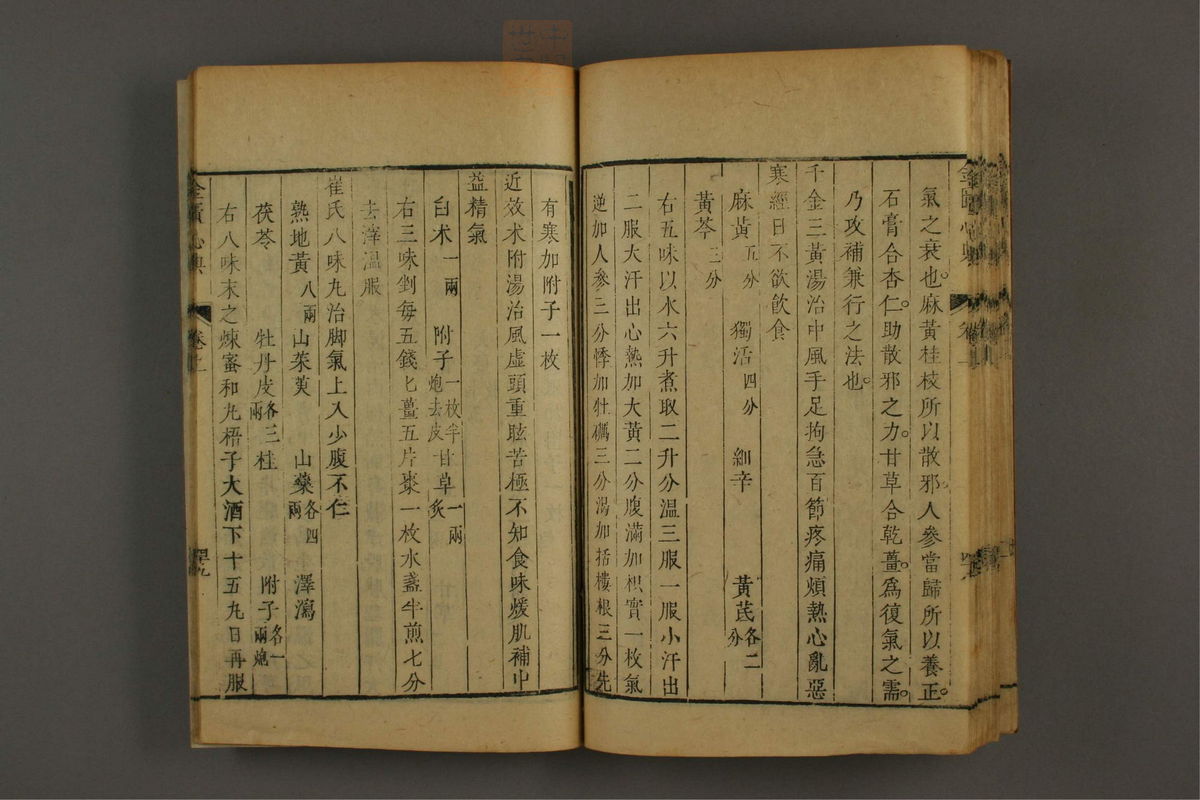 氣之衰也。麻黃桂枝所以散邪。人參當歸所以養正。
石膏合杏仁。助散邪之力。甘草合乾薑。爲復氣之需。
乃攻補兼行之法也。
千金三黃湯治中風手足拘急百節疼痛煩熱心亂惡
寒經日不欲飲食
麻黃五分 獨活四分 細辛 黃芪各二分
黃芩三分
右五味以水六升煮取二升分溫三服一服小汗出
二服大汗出心熱加大黃二分腹滿加枳實一枚氣
逆加人參三分悸加牡礪三分渴加括樓根三分先
有寒加附子一枚
近效朮附湯治風虛頭重眩苦極不知食味煖肌補中
益精氣
白朮一兩 附子一枚半炮去皮 甘草一兩炙
右三味剉每五錢匕薑五片棗一枚水盞半煎七分
去滓溫服
崔氏八味丸治脚氣上入少腹不仁
熟地黃八兩 山茱萸 山藥各四兩 澤瀉
茯苓 牡丹皮各三兩 桂 附子各一兩炮
右八味末之煉蜜和丸梧子大酒下十五丸日再服
金匱心典 卷上